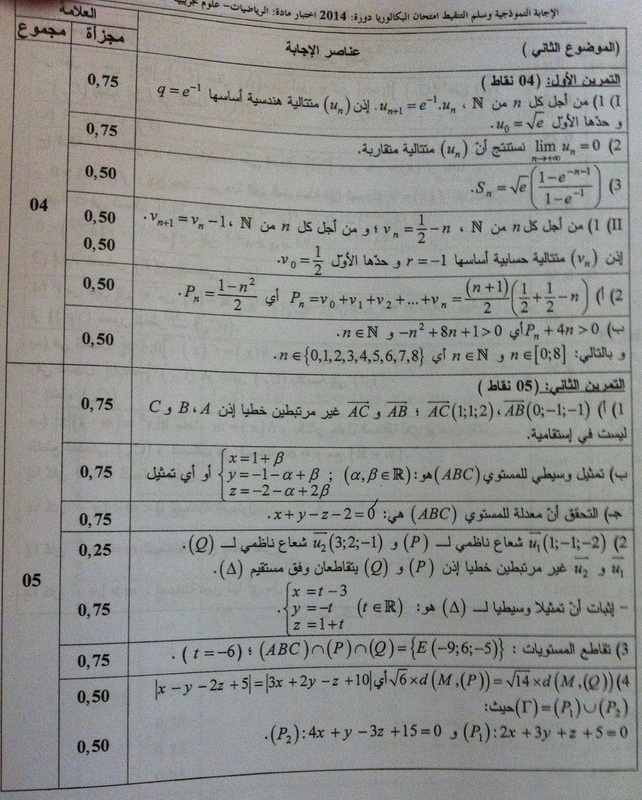 الإجابة النموذجية وسلم التنقيط امتحان البكالوريا دورة: 2014 اختبار مادة: الرياضيات- علوم تجريبية
العلامة
مجموع
مجزأة
عناصر الإجابة
(الموضوع الثاني )
التمرين الأول: (04 نقاط )
0,75
I) 1) من أجل كل n من ℕ ، u_{n+1} = e^{-1}.u_n. إذن (u_n) متتالية هندسية أساسها q = e^{-1}
و حدّها الأول u_0 = √e .
0,75
2) lim_{n→+∞} u_n = 0 نستنتج أنّ (u_n) متتالية متقاربة.
0,50
3) S_n = √e ((1-e^{-n-1})/(1-e^{-1})) .
04
0,50
II) 1) من أجل كل n من ℕ ، v_n = 1/2 - n ؛ و من أجل كل n من ℕ ، v_{n+1} = v_n - 1 .
0,50
إذن (v_n) متتالية حسابية أساسها r = -1 و حدّها الأول v_0 = 1/2 .
0,50
2) أ) P_n = v_0 + v_1 + v_2 + ... + v_n = (n+1)/2 (1/2 + 1/2 - n) أي P_n = (1-n²)/2 .
0,50
ب) P_n + 4n > 0 أي -n² + 8n + 1 > 0 و n ∈ ℕ .
و بالتالي: n ∈ [0;8] و n ∈ ℕ أي n ∈ {0,1,2,3,4,5,6,7,8} .
التمرين الثاني: (05 نقاط )
0,75
1) أ) AB(0;-1;-1) ، AC(1;1;2) ؛ AB و AC غير مرتبطين خطيا إذن A ، B و C
ليست في إستقامية.
0,75
ب) تمثيل وسيطي للمستوي (ABC) هو: { x = 1+β ; y = -1-α+β ; z = -2-α+2β ; (α,β ∈ ℝ) أو أي تمثيل
0,75
جـ) التحقق أنّ معدلة للمستوي (ABC) هي: x + y - z - 2 = 0 .
05
0,25
2) u_1(1;-1;-2) شعاع ناظمي لـ (P) و u_2(3;2;-1) شعاع ناظمي لـ (Q) .
u_1 و u_2 غير مرتبطين خطيا إذن (P) و (Q) يتقاطعان وفق مستقيم (Δ) .
0,75
- إثبات أنّ تمثيلا وسيطيا لـ (Δ) هو: { x = t-3 ; y = -t ; z = 1+t (t ∈ ℝ) .
0,75
3) تقاطع المستويات : (ABC)∩(P)∩(Q) = {E(-9;6;-5)} ؛ (t = -6) .
0,50
4) √6 × d(M,(P)) = √14 × d(M,(Q)) أي |x - y - 2z + 5| = |3x + 2y - z + 10|
(Γ) = (P_1)∪(P_2) حيث:
0,50
(P_1): 2x + 3y + z + 5 = 0 و (P_2): 4x + y - 3z + 15 = 0 .